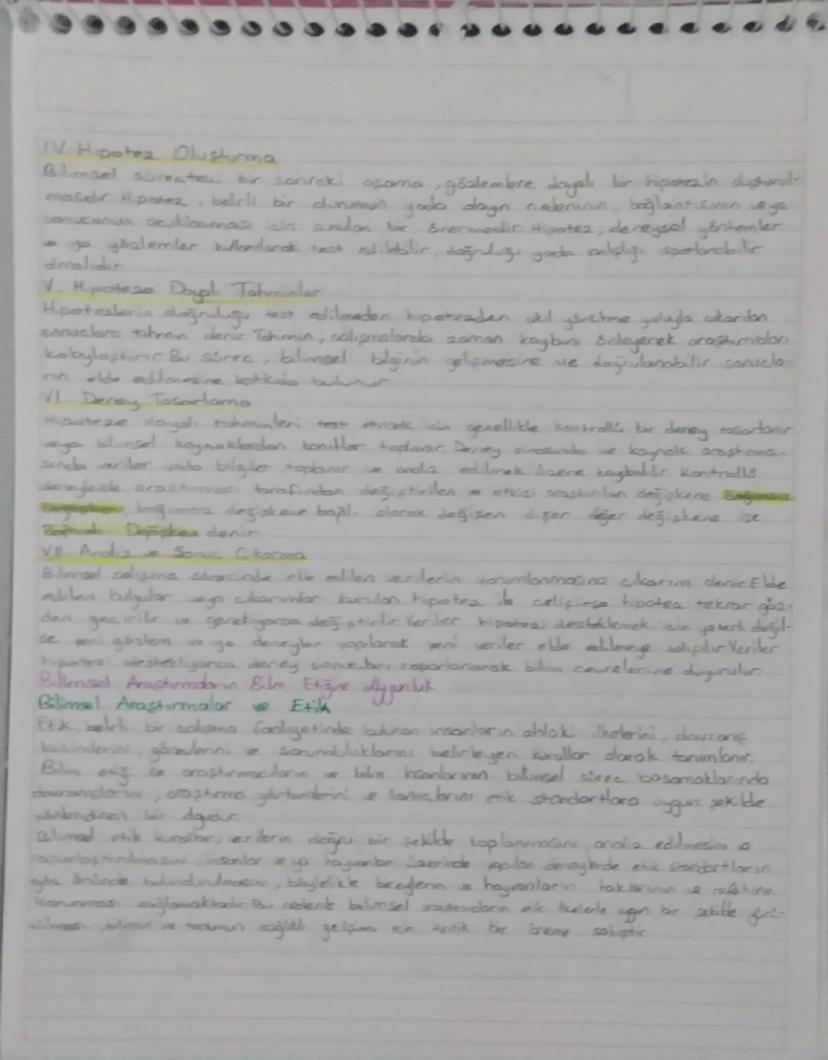 IV. Hipotez Oluşturma
Bilimsel süreçteki bir sonraki aşama, gözlemlere dayalı bir hipotezin oluşturul-
masıdır. Hipotez, belirli bir durumun yada olayın nedeninin, bağlantısının veya
sonucunun açıklanması için sunulan bir önermedir. Hipotez, deneysel yöntemler
ve ya gözlemler kullanılarak test edilebilir, doğruluğu yada yanlışlığı ispatlanabilir
olmalıdır.
V. Hipoteze Dayalı Tahminler
Hipotezlerin doğruluğu test edilmeden hipotezden akıl yürütme yoluyla çıkarılan
sonuçlara tahmin denir. Tahmin, çalışmalarda zaman kaybını önleyerek araştırmaları
kolaylaştırır. Bu süreç, bilimsel bilginin gelişmesine ve doğrulanabilir sonuçla-
rın elde edilmesine katkıda bulunur.
VI. Deney Tasarlama
Hipoteze dayalı tahminleri test etmek için genellikle kontrollü bir deney tasarlanır
veya bilimsel kaynaklardan kanıtlar toplanır. Deney sırasında ve kaynak araştırma-
sında veriler yada bilgiler toplanır ve analiz edilmek üzere kaydedilir. Kontrollü
deneylerde araştırmacı tarafından değiştirilen ve etkisi araştırılan değişkene Bağımsız
Değişken, bağımsız değişkene bağlı olarak değişen diğer değişkene ise
Bağımlı Değişken denir.
VII. Analiz ve Sonuç Çıkarma
Bilimsel çalışma sürecinde elde edilen verilerin yorumlanmasına çıkarım denir. Elde
edilen bulgular veya çıkarımlar kurulan hipotez ile çelişirse hipotez tekrar göz-
den geçirilir ve gerekiyorsa değiştirilir. Veriler hipotezi desteklemek için yeterli değil-
se yeni gözlem ve ya deneyler yapılarak yeni veriler elde edilmeye çalışılır. Veriler
hipotezi destekliyorsa deney sonuçları raporlanarak bilim çevrelerine duyurulur.
Bilimsel Araştırmaların Bilim Etiğine Uygunluk
Bilimsel Araştırmalar ve Etik
Etik, belirli bir çalışma faaliyetinde bulunan insanların ahlaki ilkelerini, davranış
biçimlerini, görevlerini ve sorumluluklarını belirleyen kurallar olarak tanımlanır.
Bilim etiği ise araştırmacıların ve bilim insanlarının bilimsel süreç basamaklarında
davranışlarını, araştırma yöntemlerini ve sonuçlarını etik standartlara uygun şekilde
yönlendiren bir olgudur.
etik kurallar, verilerin doğru bir şekilde toplanmasını, analiz edilmesini
insanlar veya hayvanlar üzerinde yapılan deneylerde etik standartların
göz önünde bulundurulmasını, böylelikle bireylerin ve hayvanların haklarının ve refahının
korunması sağlamaktadır. Bu nedenle bilimsel etik ilkelerle uygun bir şekilde
bilimin ve toplumun sağlıklı gelişimi için kritik bir öneme sahiptir.